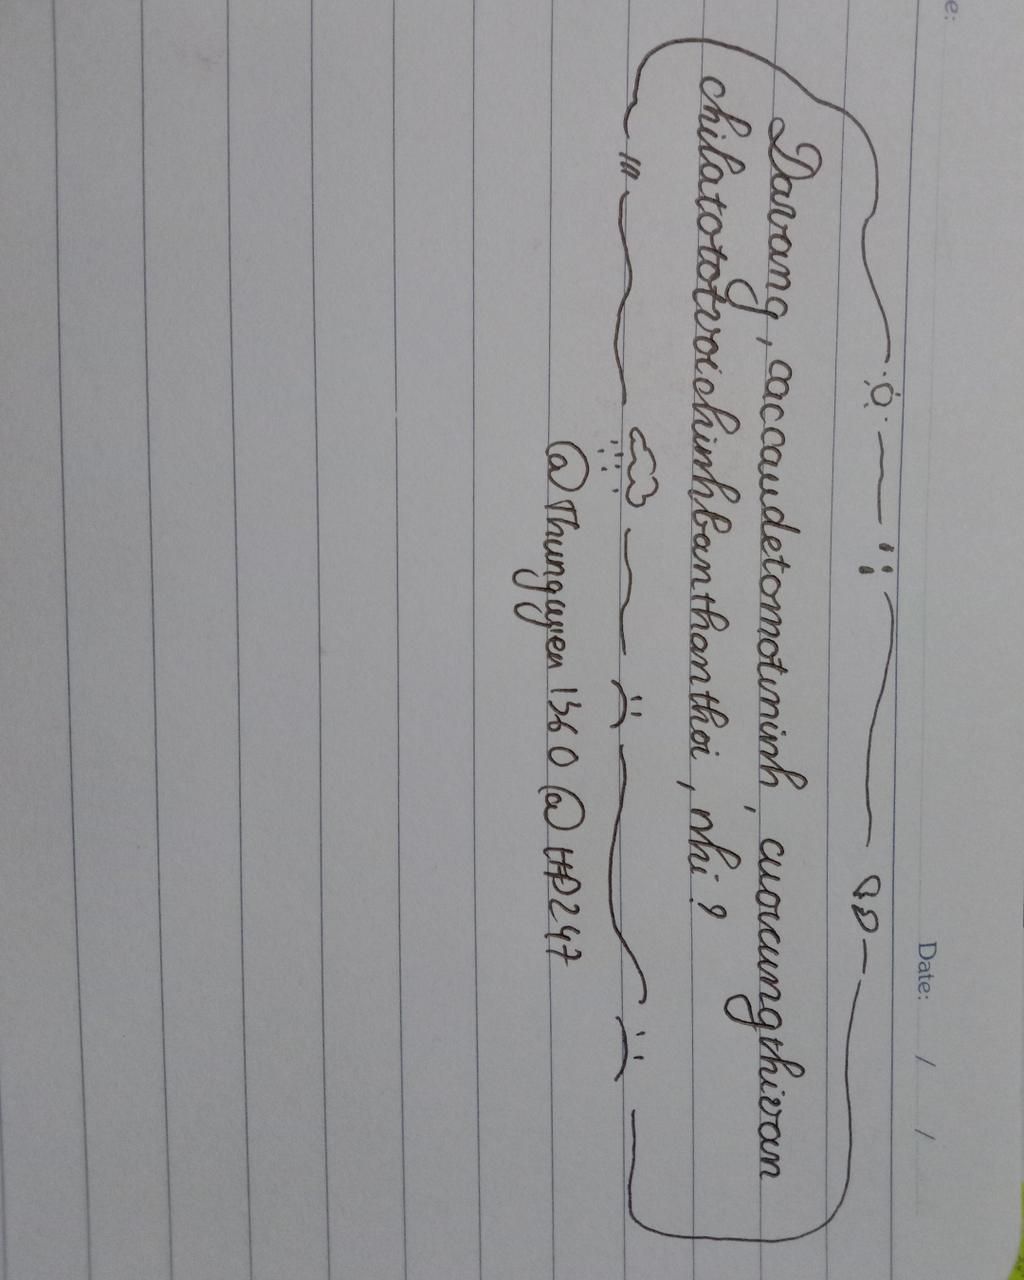 e:
Date: / /
Davang, caccaudetomotminh, cuoicungthivan
chilatototvoichinhbanthanthoi, nhi?
@Thunguyen 1360 @ HP247